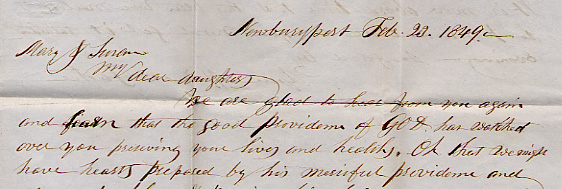 Newburyport Feb. 23. 1849.
Mary & Susan
My dear daughters
We are glad to hear from you again
and learn that the good providence of GOD. has watched
over you preserving your lives and healths. Oh that we might
have hearts prepared by his merciful providence and